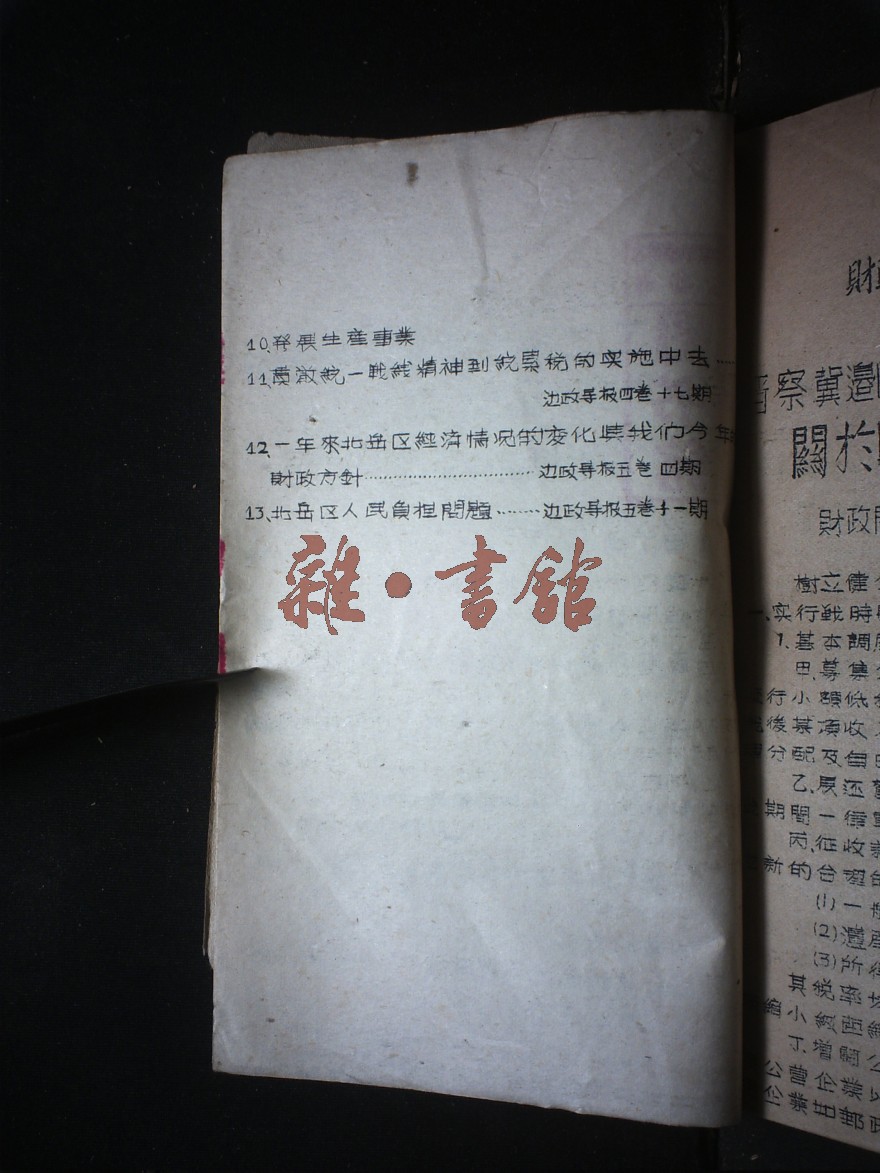 10、発展生產事業
11、貫澈統一戰綫精神到統累税的实施中去……
边政导报四卷十七期
12、一年來北岳区經済情况的变化與我们今年
財政方針……………………………边政导报五卷四期
13、北岳区人民負担問題………边政导报五卷十一期
雜·書館
財
晋察冀邉
關於
財政
樹立健
一、实行戦時
1、基本調
甲、募集
行小額低
後某項收
分配及
乙、
期間一
丙、征收
新的合理
(1)一般
(2)遺產
(3)所得
其税率
縮小級距
丁、增開公
公营企業
企業如郵政